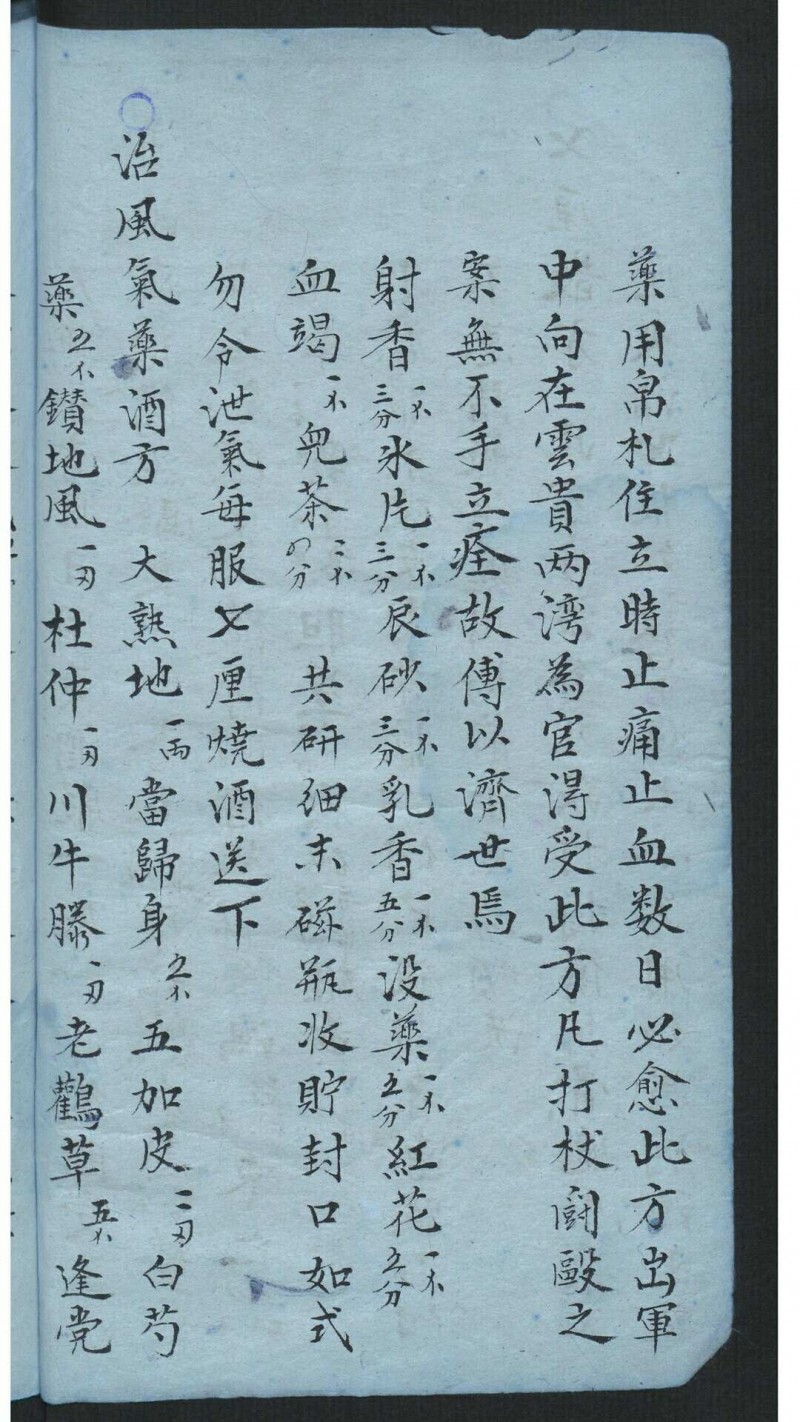 藥用帛札住立時止痛止血数日必愈此方出軍
中向在雲貴两湾為官淂受此方凡打杖鬪毆之
案無不手立痊故傅以濟世焉
射香一不三分氷片一不三分辰砂一不三分乳香一不五分没藥一不五分紅花一不五分
血竭一不兒茶二不四分共研细末磁瓶收貯封口如式
勿令泄氣每服七厘燒酒送下
治風氣藥酒方 大熟地一両當歸身五不五加皮二刄白芍
藥五不鑚地風一刄杜仲一刄川牛膝一刄老鸛草五不逢党